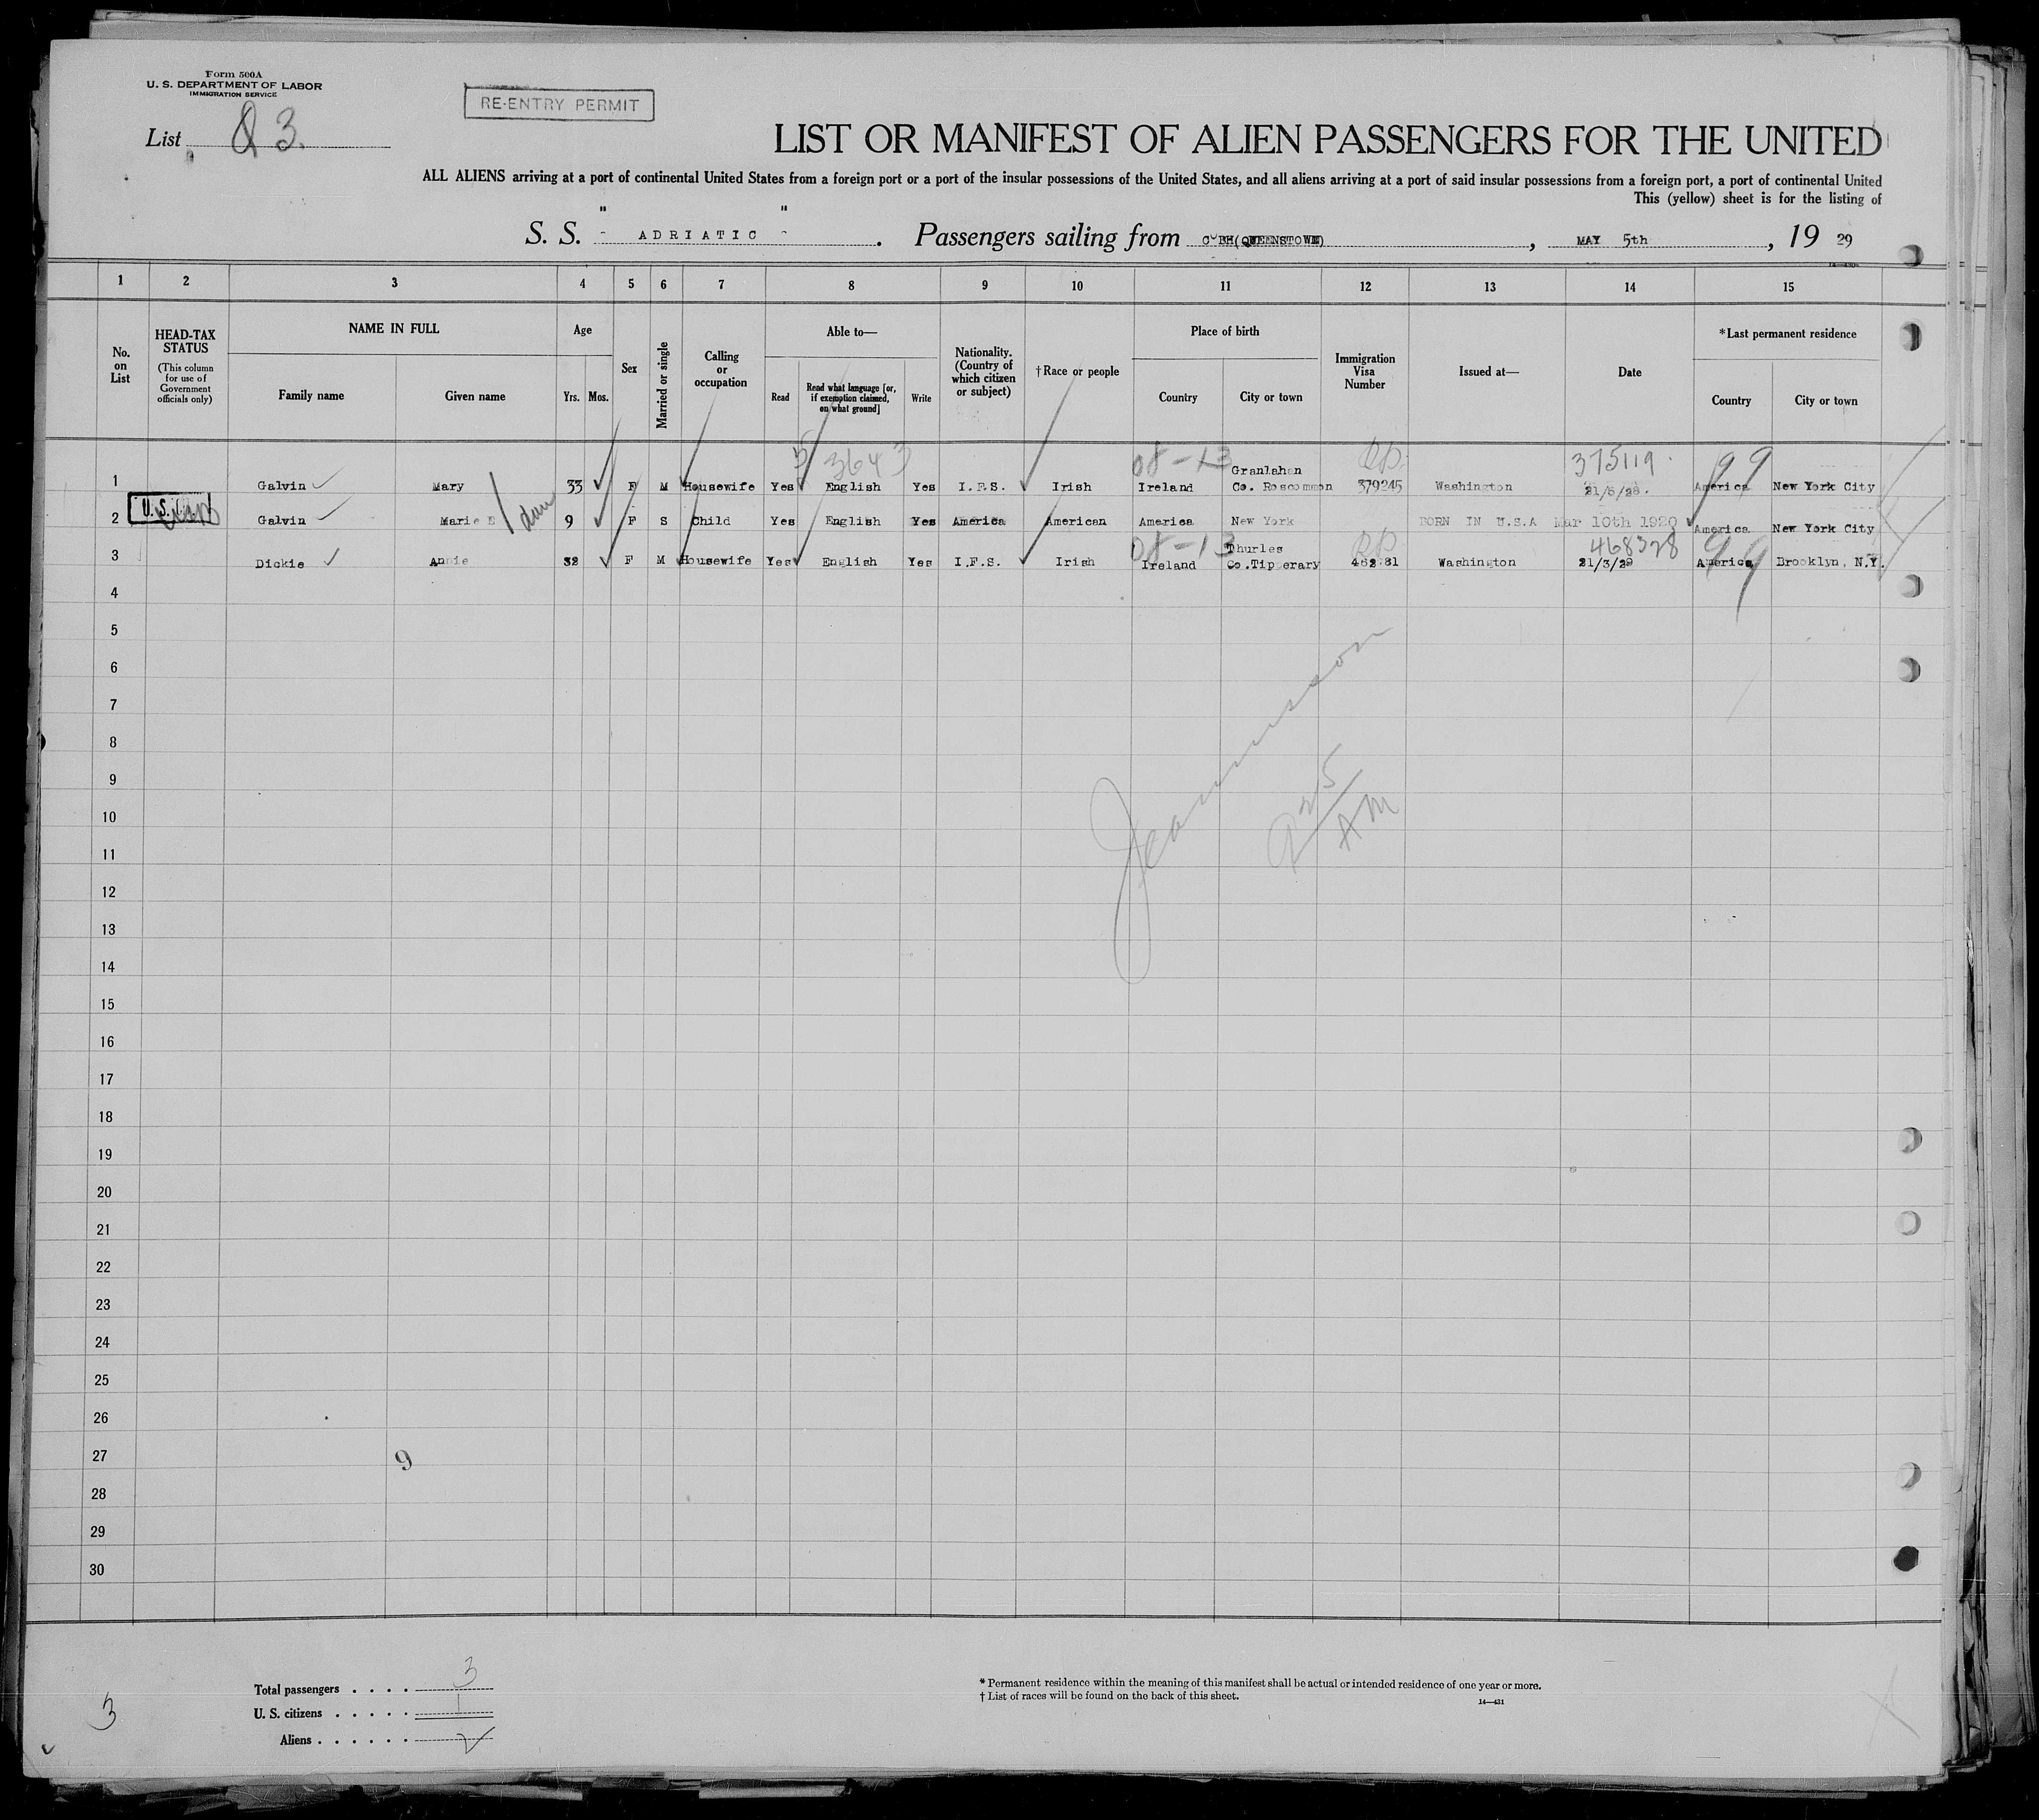 Form 500A
U. S. DEPARTMENT OF LABOR
IMMIGRATION SERVICE
RE-ENTRY PERMIT
List 3.
LIST OR MANIFEST OF ALIEN PASSENGERS FOR THE UNITED
ALL ALIENS arriving at a port of continental United States from a foreign port or a port of the insular possessions of the United States, and all aliens arriving at a port of said insular possessions from a foreign port, a port of continental United
This (yellow) sheet is for the listing of
S. S. " ADRIATIC " . Passengers sailing from COBH(QUEENSTOWN) , MAY 5th , 19 29
1 2 3 4 5 6 7 8 9 10 11 12 13 14 15
No. on List
HEAD-TAX STATUS
(This column for use of Government officials only)
NAME IN FULL
Family name Given name
Age
Yrs. Mos.
Sex
Married or single
Calling or occupation
Able to—
Read
Read what language [or, if exemption claimed, on what ground]
Write
Nationality. (Country of which citizen or subject)
†Race or people
Place of birth
Country City or town
Immigration Visa Number
Issued at—
Date
*Last permanent residence
Country City or town
3643 08-13 RP. 375119. 99
1 Galvin Mary 33 F M Housewife Yes English Yes I.F.S. Irish Ireland Granlahan Co. Roscommon 379245 Washington America New York City
2 Galvin Marie E 9 F S Child Yes English Yes America American America New York BORN IN U.S.A Mar 10th 1920 America New York City
08-13 RP 468328 99
3 Dickie Annie 32 F M Housewife Yes English Yes I.F.S. Irish Ireland Thurles Co.Tipperary Washington 21/3/29 America Brooklyn, N.Y.
4
5
6
7
8
9
10
11
12
13
14
15
16
17
18
19
20
21
22
23
24
25
26
27 9
28
29
30
925 AM
Total passengers . . . . 3
U. S. citizens . . . . . 1
Aliens . . . . . .
3
* Permanent residence within the meaning of this manifest shall be actual or intended residence of one year or more.
† List of races will be found on the back of this sheet.
14—431